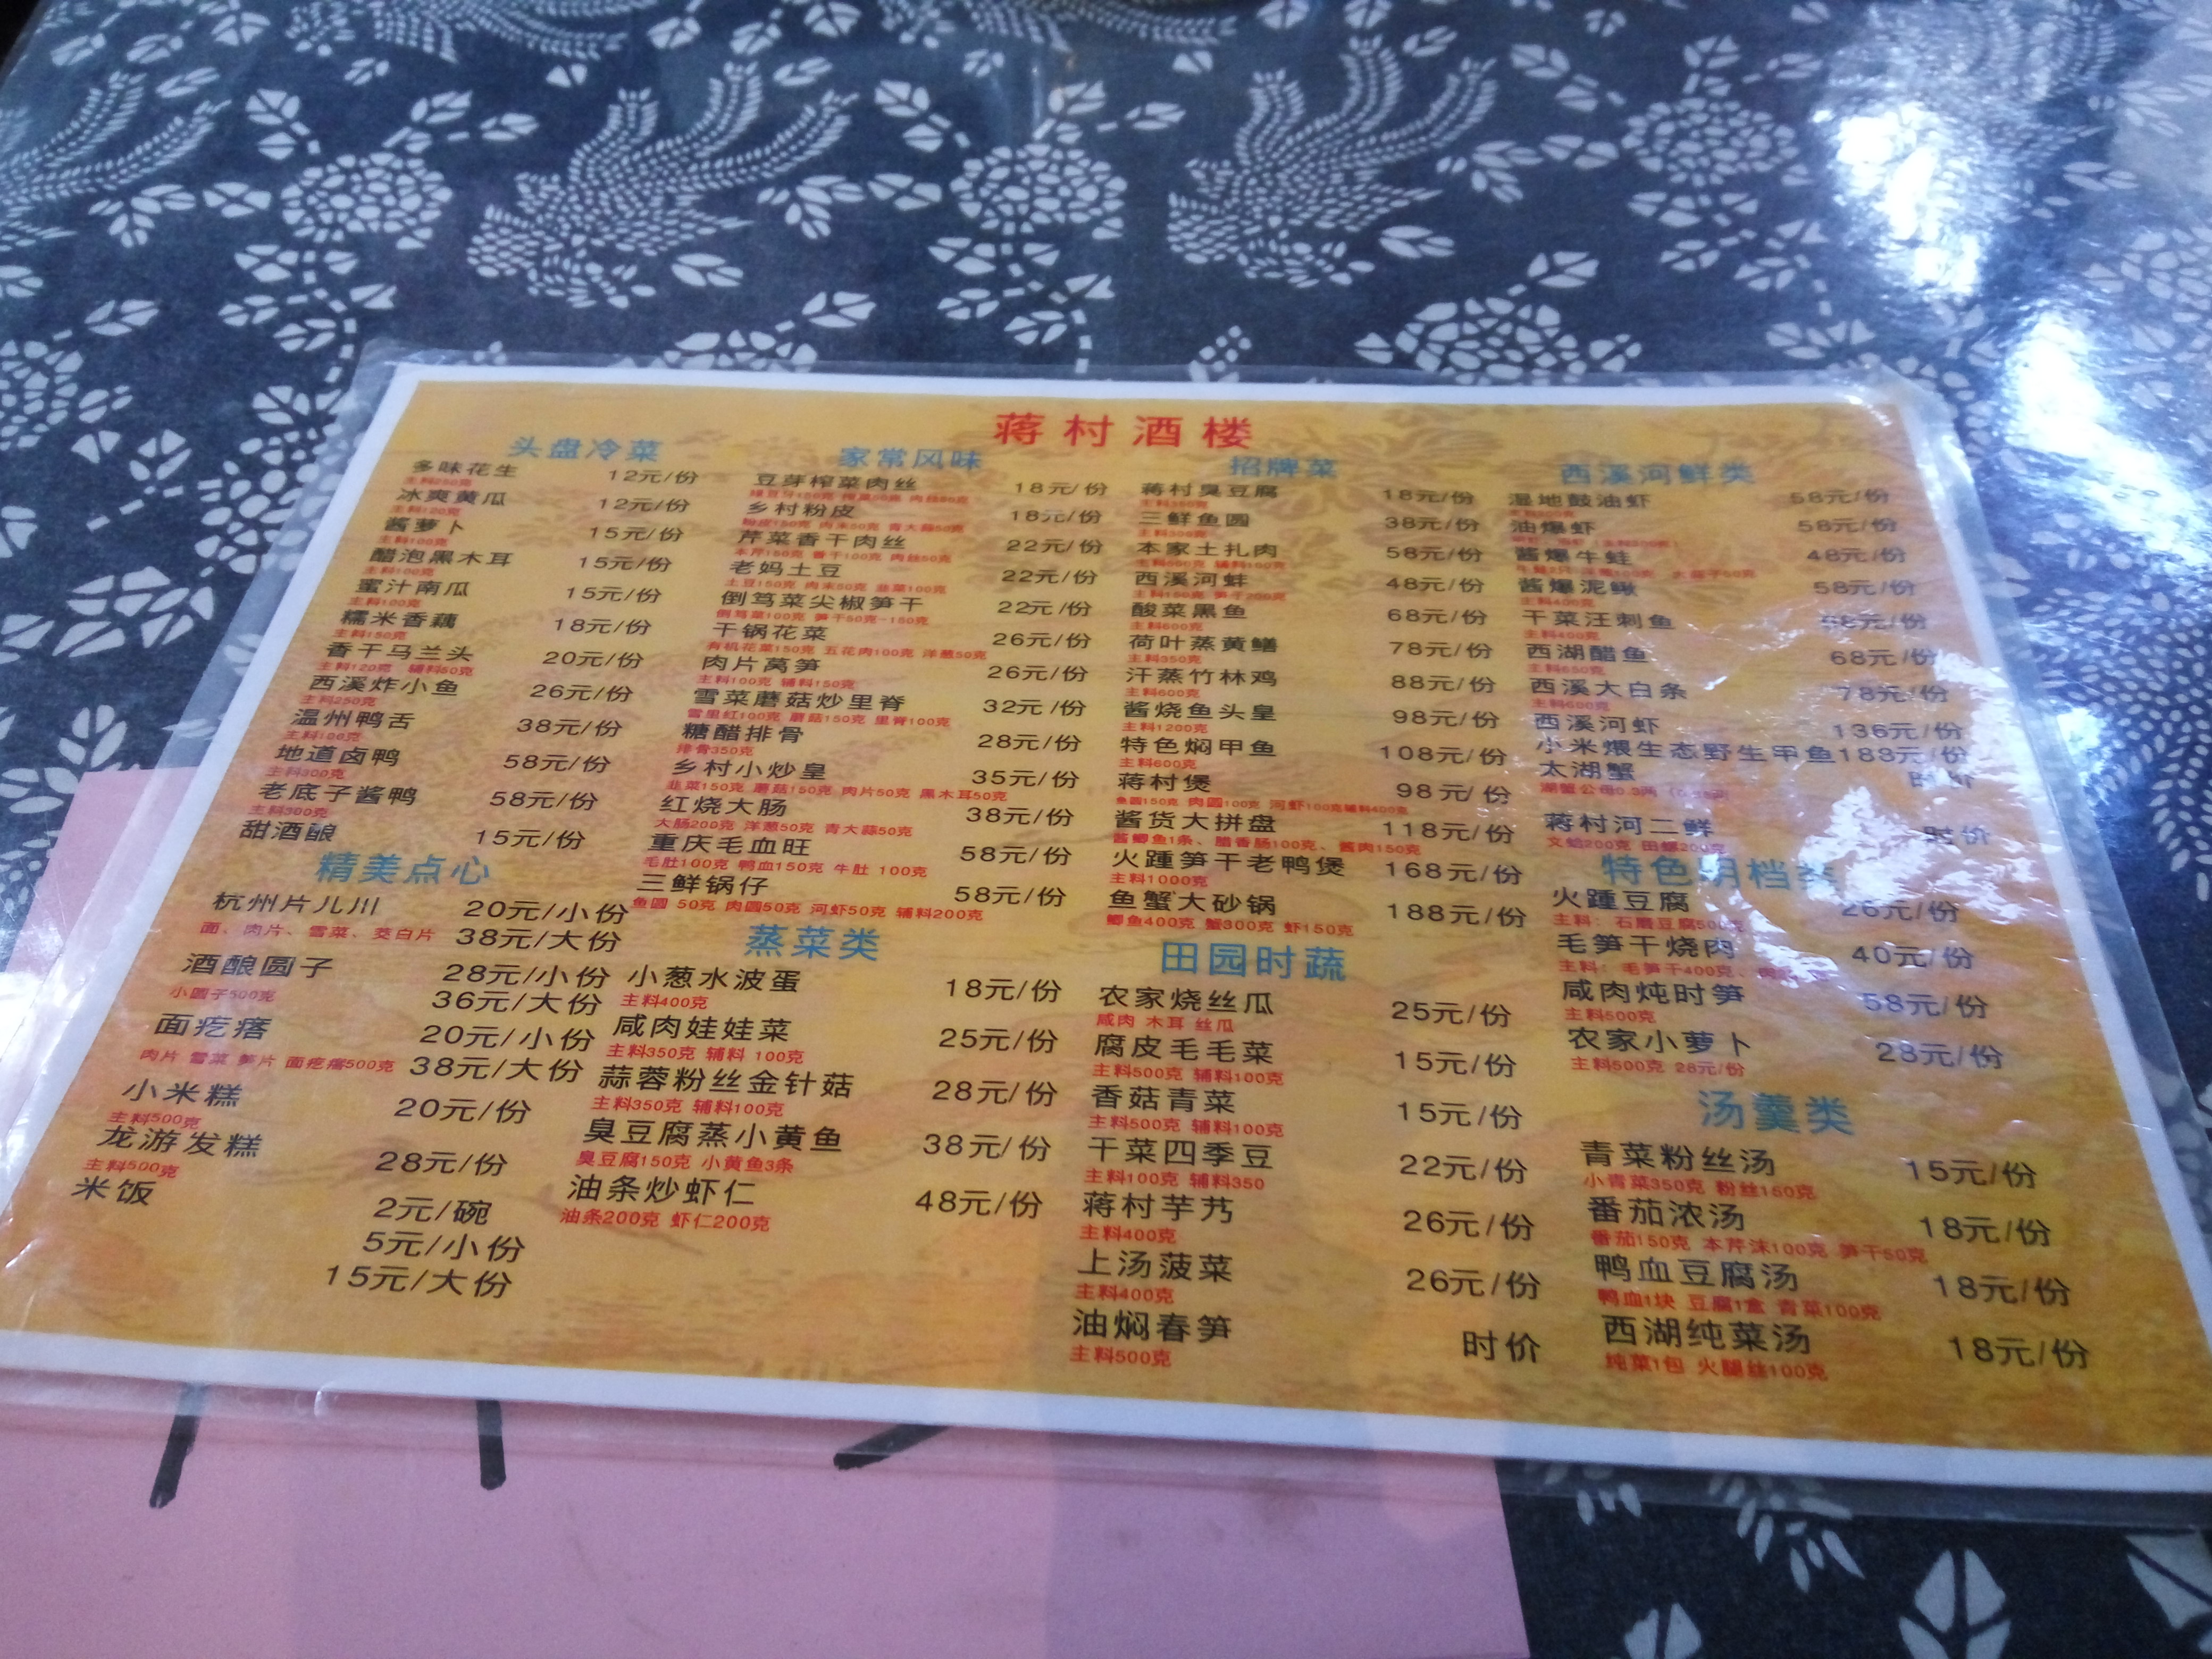 蒋村酒楼
头盘冷菜
多味花生 12元/份
主料250克
冰爽黄瓜 12元/份
主料120克
酱萝卜 15元/份
主料100克
醋泡黑木耳 15元/份
主料100克
蜜汁南瓜 15元/份
主料100克
糯米香藕 18元/份
主料150克
香干马兰头 20元/份
主料120克 辅料50克
西溪炸小鱼 26元/份
主料250克
温州鸭舌 38元/份
主料100克
地道卤鸭 58元/份
主料300克
老底子酱鸭 58元/份
主料300克
甜酒酿 15元/份
精美点心
杭州片儿川 20元/小份
面、肉片、雪菜、茭白片 38元/大份
酒酿圆子 28元/小份
小圆子500克 36元/大份
面疙瘩 20元/小份
肉片 雪菜 笋片 面疙瘩500克 38元/大份
小米糕 20元/份
主料500克
龙游发糕 28元/份
主料500克
米饭 2元/碗
5元/小份
15元/大份
家常风味
豆芽榨菜肉丝 18元/份
乡村粉皮 18元/份
粉皮150克 肉末50克 青大蒜50克
芹菜香干肉丝 22元/份
本芹150克 香干100克 肉丝50克
老妈土豆 22元/份
土豆150克 肉末50克 韭菜100克
倒笃菜尖椒笋干 22元/份
倒笃菜100克 笋干50克-150克
干锅花菜 26元/份
有机花菜150克 五花肉100克 洋葱50克
肉片莴笋 26元/份
主料100克 辅料150克
雪菜蘑菇炒里脊 32元/份
雪里红100克 蘑菇150克 里脊100克
糖醋排骨 28元/份
排骨350克
乡村小炒皇 35元/份
韭菜150克 蘑菇150克 肉片50克 黑木耳50克
红烧大肠 38元/份
大肠200克 洋葱50克 青大蒜50克
重庆毛血旺 58元/份
毛肚100克 鸭血150克 牛肚 100克
三鲜锅仔 58元/份
鱼圆 50克 肉圆50克 河虾50克 辅料200克
蒸菜类
小葱水波蛋 18元/份
主料400克
咸肉娃娃菜 25元/份
主料350克 辅料 100克
蒜蓉粉丝金针菇 28元/份
主料350克 辅料100克
臭豆腐蒸小黄鱼 38元/份
臭豆腐150克 小黄鱼3条
油条炒虾仁 48元/份
油条200克 虾仁200克
招牌菜
蒋村臭豆腐 18元/份
三鲜鱼圆 38元/份
主料300克
本家土扎肉 58元/份
西溪河蚌 48元/份
主料150克 笋干200克
酸菜黑鱼 68元/份
主料600克
荷叶蒸黄鳝 78元/份
主料350克
汗蒸竹林鸡 88元/份
主料600克
酱烧鱼头皇 98元/份
主料1200克
特色焖甲鱼 108元/份
主料600克
蒋村煲 98元/份
鱼圆150克 肉圆100克 河虾100克辅料400克
酱货大拼盘 118元/份
酱鲫鱼1条、腊香肠100克、酱肉150克
火踵笋干老鸭煲 168元/份
主料1000克
鱼蟹大砂锅 188元/份
鲫鱼400克 蟹300克 虾150克
田园时蔬
农家烧丝瓜 25元/份
咸肉 木耳 丝瓜
腐皮毛毛菜 15元/份
主料500克 辅料100克
香菇青菜 15元/份
主料500克 辅料100克
干菜四季豆 22元/份
主料100克 辅料350
蒋村芋艿 26元/份
主料400克
上汤菠菜 26元/份
主料400克
油焖春笋 时价
主料500克
西溪河鲜类
湿地鼓油虾 58元/份
油爆虾 58元/份
酱爆牛蛙 48元/份
酱爆泥鳅 58元/份
主料400克
干菜汪刺鱼
主料400克
西湖醋鱼 68元/份
主料650克
西溪大白条 78元/份
主料600克
西溪河虾 136元/份
小米煨生态野生甲鱼188元/份
太湖蟹 时价
蒋村河二鲜 时价
文蛤200克 田螺200克
特色明档类
火踵豆腐 26元/份
主料：石磨豆腐500克
毛笋干烧肉 40元/份
主料：毛笋干400克、
咸肉炖时笋 58元/份
主料500克
农家小萝卜 28元/份
主料500克 28元/份
汤羹类
青菜粉丝汤 15元/份
小青菜350克 粉丝150克
番茄浓汤 18元/份
番茄150克 本芹沫100克 笋干50克
鸭血豆腐汤 18元/份
鸭血1块 豆腐1盒 青菜100克
西湖纯菜汤 18元/份
纯菜1包 火腿丝100克